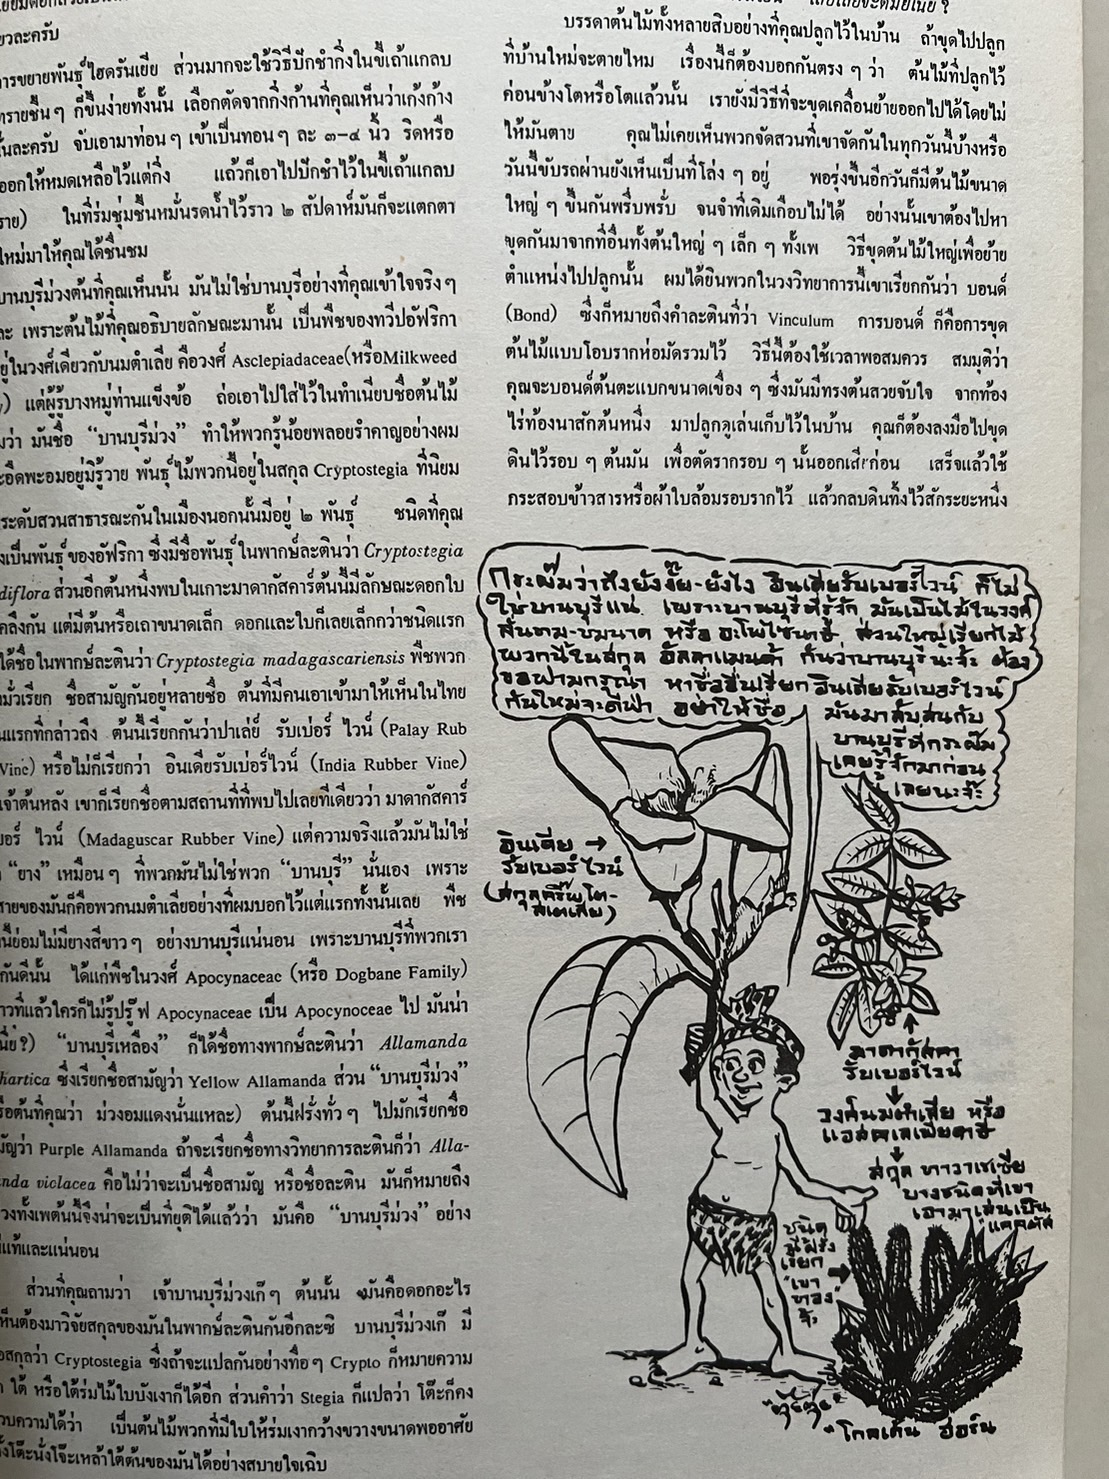 ยวละครับ
การขยายพันธุ์ไฮดรันเยีย ส่วนมากจะใช้วิธีปักชำกิ่งในขี้เถ้าแกลบ
ทรายชื้นๆ ก็ขึ้นง่ายทั้งนั้น เลือกตัดจากกิ่งก้านที่คุณเห็นว่าเก้งก้าง
นั้นละครับ จับเอามาท่อนๆ เข้าเป็นทอนๆ ละ ๓–๔ นิ้ว ริดหรือ
ออกให้หมดเหลือไว้แต่กิ่ง แล้วก็เอาไปปักชำไว้ในขี้เถ้าแกลบ
ราย) ในที่ร่มชุ่มชื้นหมั่นรดน้ำไว้ราว ๒ สัปดาห์มันก็จะแตกตา
ใหม่มาให้คุณได้ชื่นชม
บานบุรีม่วงต้นที่คุณเห็นนั้น มันไม่ใช่บานบุรีอย่างที่คุณเข้าใจจริงๆ
ละ เพราะต้นไม้ที่คุณอธิบายลักษณะมานั้น เป็นพืชของทวีปอัฟริกา
อยู่ในวงศ์เดียวกับนมตำเลีย คือวงศ์ Asclepiadaceae(หรือMilkweed
y) แต่ผู้รู้บางหมู่ท่านแข็งข้อ ถ่อเอาไปใส่ไว้ในทำเนียบชื่อต้นไม้
มว่า มันชื่อ “บานบุรีม่วง” ทำให้พวกรู้น้อยพลอยรำคาญอย่างผม
ะอืดพะอมอยู่มิรู้วาย พันธุ์ไม้พวกนี้อยู่ในสกุล Cryptostegia ที่นิยม
ระดับสวนสาธารณะกันในเมืองนอกนั้นมีอยู่ ๒ พันธุ์ ชนิดที่คุณ
งเป็นพันธุ์ของอัฟริกา ซึ่งมีชื่อพันธุ์ในพากษ์ละตินว่า Cryptostegia
diflora ส่วนอีกต้นหนึ่งพบในเกาะมาดากัสคาร์ต้นนี้มีลักษณะดอกใบ
คลึงกัน แต่มีต้นหรือเถาขนาดเล็ก ดอกและใบก็เลยเล็กกว่าชนิดแรก
ได้ชื่อในพากษ์ละตินว่า Cryptostegia madagascariensis พืชพวก
มั่วเรียก ชื่อสามัญกันอยู่หลายชื่อ ต้นที่มีคนเอาเข้ามาให้เห็นในไทย
นแรกที่กล่าวถึง ต้นนี้เรียกกันว่าปาเล่ย์ รับเบ่อร์ ไวน์ (Palay Rub
Vine) หรือไม่ก็เรียกว่า อินเดียรับเบ่อร์ไวน์ (India Rubber Vine)
เจ้าต้นหลัง เขาก็เรียกชื่อตามสถานที่ที่พบไปเลยทีเดียวว่า มาดากัสคาร์
บอร์ ไวน์ (Madaguscar Rubber Vine) แต่ความจริงแล้วมันไม่ใช่
“ยาง” เหมือนๆ ที่พวกมันไม่ใช่พวก “บานบุรี” นั่นเอง เพราะ
สายของมันก็คือพวกนมตำเลียอย่างที่ผมบอกไว้แต่แรกทั้งนั้นเลย พืช
นี้ย่อมไม่มียางสีขาวๆ อย่างบานบุรีแน่นอน เพราะบานบุรีที่พวกเรา
กันดีนั้น ได้แก่พืชในวงศ์ Apocynaceac (หรือ Dogbane Family)
าวที่แล้วใครก็ไม่รู้ปรู๊ฟ Apocynaceae เป็น Apocynoceae ไป มันน่า
นี่ย?) “บานบุรีเหลือง” ก็ได้ชื่อทางพากษ์ละตินว่า Allamanda
hartica ซึ่งเรียกชื่อสามัญว่า Yellow Allamanda ส่วน “บานบุรีม่วง”
รือต้นที่คุณว่า ม่วงอมแดงนั่นแหละ) ต้นนี้ฝรั่งทั่วๆ ไปมักเรียกชื่อ
มัญว่า Purple Allamanda ถ้าจะเรียกชื่อทางวิทยาการละตินก็ว่า Alla-
nda viclacea คือไม่ว่าจะเป็นชื่อสามัญ หรือชื่อละติน มันก็หมายถึง
วงทั้งเพต้นนี้จึงน่าจะเป็นที่ยุติได้แล้วว่า มันคือ “บานบุรีม่วง” อย่าง
แท้และแน่นอน
ส่วนที่คุณถามว่า เจ้าบานบุรีม่วงเก๊ๆ ต้นนั้น มันคือดอกอะไร
ห็นต้องมาวิจัยสกุลของมันในพากษ์ละตินกันอีกละซิ บานบุรีม่วงเก๊ มี
อสกุลว่า Cryptostegia ซึ่งถ้าจะแปลกันอย่างทื่อๆ Crypto ก็หมายความ
ใต้ หรือใต้ร่มไม้ใบบังเงาก็ได้อีก ส่วนคำว่า Stegia ก็แปลว่า โต๊ะก็คง
วบความได้ว่า เป็นต้นไม้พวกที่มีใบให้ร่มเงากว้างขวางขนาดพออาศัย
ั้งโต๊ะนั่งโจ๊ะเหล้าใต้ต้นของมันได้อย่างสบายใจเฉิบ
บรรดาต้นไม้ทั้งหลายสิบอย่างที่คุณปลูกไว้ในบ้าน ถ้าขุดไปปลูก
ที่บ้านใหม่จะตายไหม เรื่องนี้ก็ต้องบอกกันตรงๆ ว่า ต้นไม้ที่ปลูกไว้
ค่อนข้างโตหรือโตแล้วนั้น เรายังมีวิธีที่จะขุดเคลื่อนย้ายออกไปได้โดยไม่
ให้มันตาย คุณไม่เคยเห็นพวกจัดสวนที่เขาจัดกันในทุกวันนี้บ้างหรือ
วันนี้ขับรถผ่านยังเห็นเป็นที่โล่งๆ อยู่ พอรุ่งขึ้นอีกวันก็มีต้นไม้ขนาด
ใหญ่ๆ ขึ้นกันพรึบพรั่บ จนจำที่เดิมเกือบไม่ได้ อย่างนั้นเขาต้องไปหา
ขุดกันมาจากที่อื่นทั้งต้นใหญ่ๆ เล็กๆ ทั้งเพ วิธีขุดต้นไม้ใหญ่เพื่อย้าย
ตำแหน่งไปปลูกนั้น ผมได้ยินพวกในวงวิทยาการนี้เขาเรียกกันว่า บอนด์
(Bond) ซึ่งก็หมายถึงคำละตินที่ว่า Vinculum การบอนด์ ก็คือการขุด
ต้นไม้แบบโอบรากห่อมัดรวมไว้ วิธีนี้ต้องใช้เวลาพอสมควร สมมุติว่า
คุณจะบอนด์ต้นตะแบกขนาดเขื่องๆ ซึ่งมันมีทรงต้นสวยจับใจ จากท้อง
ไร่ท้องนาสักต้นหนึ่ง มาปลูกดูเล่นเก็บไว้ในบ้าน คุณก็ต้องลงมือไปขุด
ดินไว้รอบๆ ต้นมัน เพื่อตัดรากรอบๆ นั้นออกเสียก่อน เสร็จแล้วใช้
กระสอบข้าวสารหรือผ้าใบล้อมรอบรากไว้ แล้วกลบดินทิ้งไว้สักระยะหนึ่ง
กระผ๊มว่าถึงยังงั๊ย-ยังไง อินเดียรับเบอร์ไวน์ ก็ไม่
ใช่บานบุรีแน่ เพราะบานบุรีที่รู้จัก มันเป็นไม้ในวงศ์
ลั่นทม-ชมนาด หรือ อะโพไซนาซี่ ส่วนใหญ่เรียกไม้
พวกนี้ในสกุล อัลลาแมนด้า กันว่าบานบุรีนะจ๊ะ ต้อง
ขอฟามกรุณา หาชื่ออื่นเรียกอินเดียรับเบอร์ไวน์
กันใหม่จะดีฟ่า อย่าให้ชื่อ
มันมาสับสนกับ
บานบุรีที่กระผ๊ม
เคยรู้จักมาก่อน
เลยนะจ๊ะ
อินเดีย →
รับเบอร์ไวน์
(สกุลคริ๊พโต-
สเตเสีย)
มาดากัสคา
รับเบอร์ไวน์
วงศ์นมตำเลีย หรือ
แอสคเลเพียดาซี่
สกุล ทาวาเรเซีย
บางชนิดที่เขา
เอามาเล่นเป็น
แคคตัส
ชนิด
นี้ฝรั่ง
เรียก
“เขา
ทอง”
จ้ะ
“โกลเด้น ฮอร์น